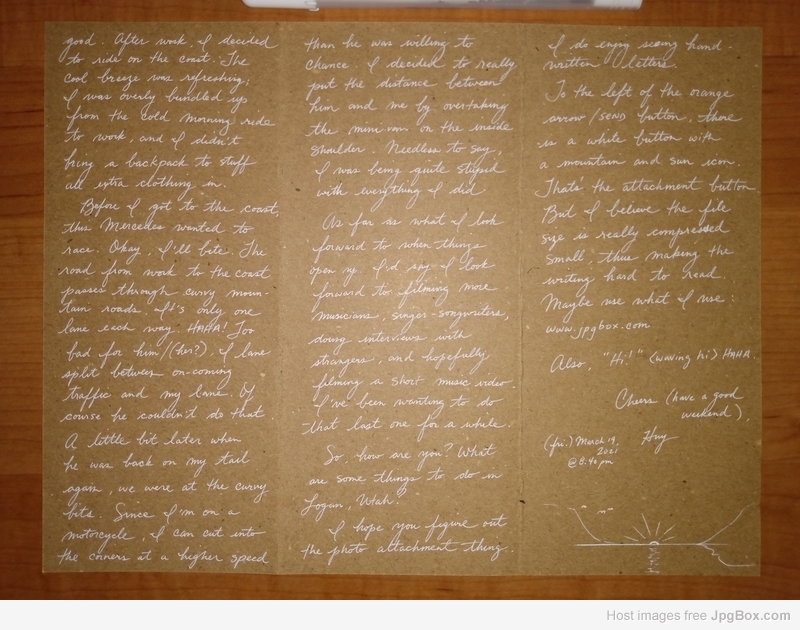 good. After work, I decided
to ride on the coast. The
cool breeze was refreshing;
I was overly bundled up
from the cold morning ride
to work, and I didn't
bring a backpack to stuff
all extra clothing in.
Before I got to the coast,
this Mercedes wanted to
race. Okay, I'll bite. The
road from work to the coast
passes through curvy moun-
tain roads. It's only one
lane each way. HAHA! Too
bad for him/(her?). I lane
split between on-coming
traffic and my lane. Of
course he couldn't do that.
A little bit later when
he was back on my tail
again, we were at the curvy
bits. Since I'm on a
motorcycle, I can cut into
the corners at a higher speed
than he was willing to
chance. I decided to really
put the distance between
him and me by overtaking
the mini-van on the inside
shoulder. Needless to say,
I was being quite stupid
with everything I did.
As far as what I look
forward to when things
open up. I'd say I look
forward to filming more
musicians, singer-songwriters,
doing interviews with
strangers, and hopefully,
filming a short music video.
I've been wanting to do
that last one for a while.
So, how are you? What
are some things to do in
Logan, Utah?
I hope you figure out
the photo attachment thing.
I do enjoy seeing hand-
written letters.
To the left of the orange
arrow/SEND button, there
is a white button with
a mountain and sun icon.
That's the attachment button.
But I believe the file
size is really compressed
small, thus making the
writing hard to read.
Maybe use what I use:
www.jpgbox.com
Also, "Hi!" <waving hi> HAHA.
Cheers (have a good
weekend).
Huy
(fri.) March 19,
2021
@8:40pm
Host images free JpgBox.com